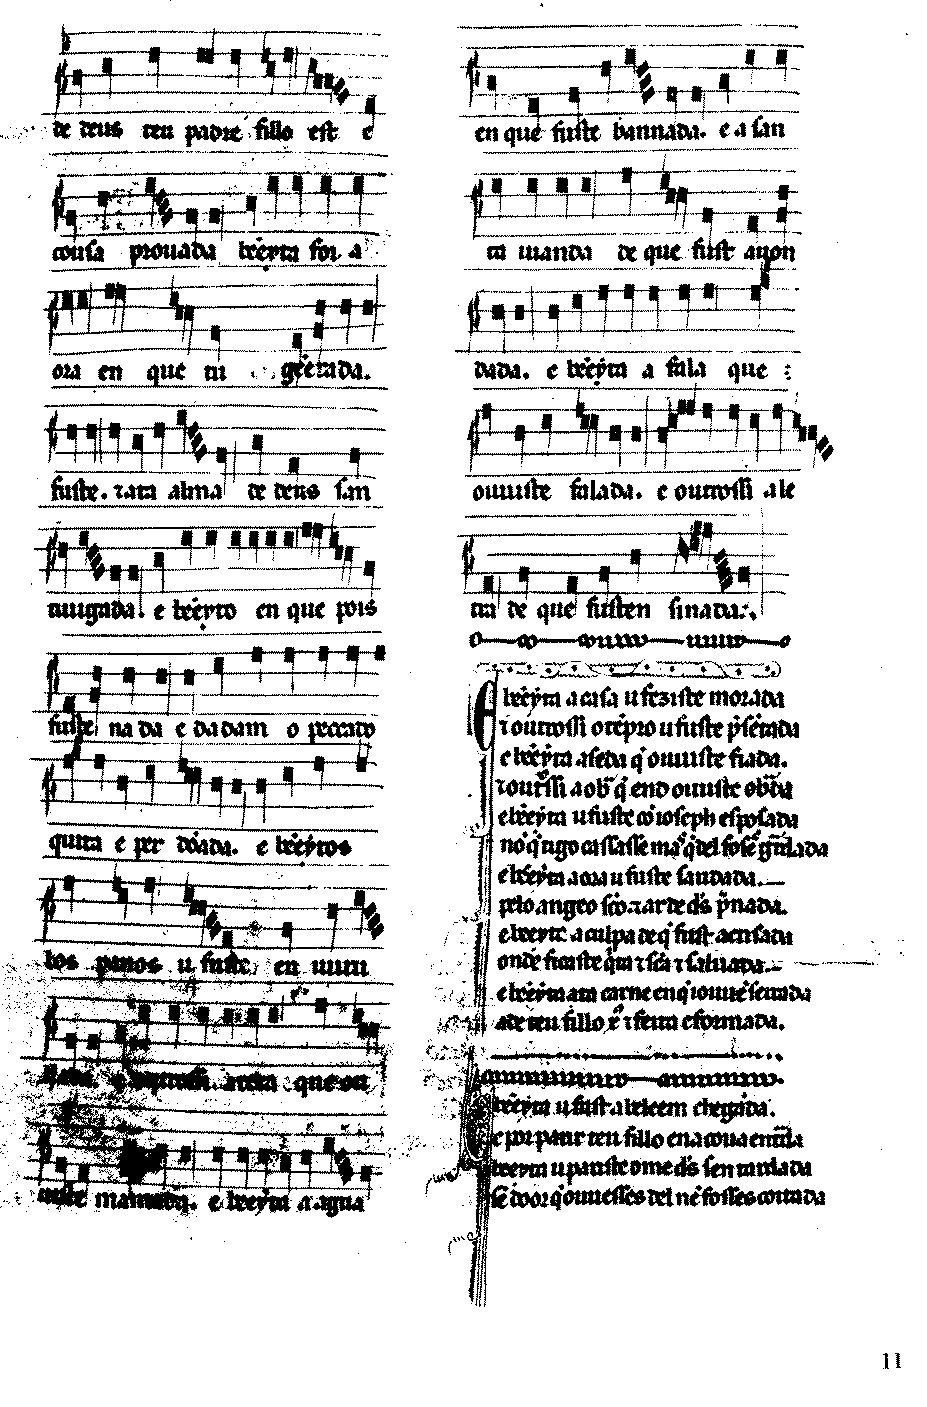 de deus teu padre fillo est e
cousa prouada bẽeyta foi a
ora en que tu gẽerada.
fuste. τ a ta alma de deus san
tiuigada. e bẽeyto en que pois
fuste na da e dadam o peccato
quita e per dõada. e bẽeytos
los panos u fuste en uuu
que ou
uiste mamada. e bẽeyta a agua
en que fuste bannada. e a san
ta uianda de que fust auon
dada. e bẽeyta a fala que
ouuiste falada. e outrossi a le
tra de que fusten sinada.
E bẽeyta a casa u feziste morada
τ outrossi o tẽpro u fuste p̃sẽtada
e bẽeyta a seda q̇ ouuiste fiada.
τ outrssi a ob̃ q̇ end ouuiste obr̃da
e bẽeyta u fuste cõ ioseph esposada
nõ q̇ tigo casasse ma q̇ del fosse gr̃dada
e bẽeyta a ora u fuste saudada.
pelo angeo sc̃o. τ ar de ds̃ p̃nada.
e bẽeyte a culpa de q̇ fust acusada
onde ficaste q̇ta τ sc̃a τ saluada.
e bẽeyta ta carne en q̇ iouue sarrada
a de teu fillo e τ feita e formada.
bẽeyta u fust a beleem chegada.
e poi paiir teu fillo ena coua entr̃da
bẽeyta u pariste ome ds̃ sen tardada
sẽ door q̇ ouuesses del nẽ fosses coitada
11